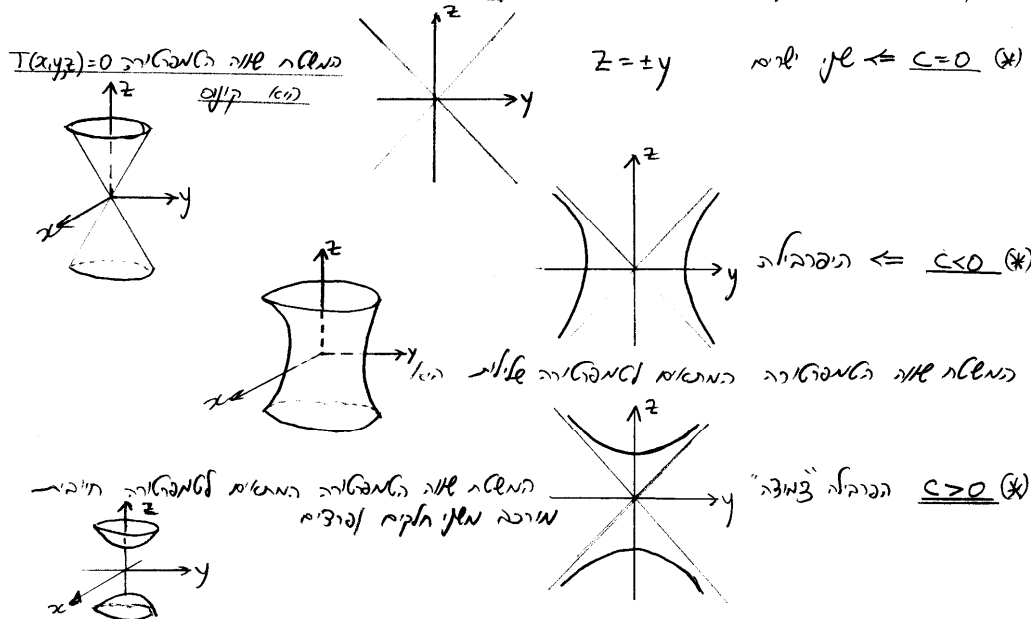 (*) C=0 ⇐ שני ישרים Z=±y
המשטח שווה הטמפרטורה T(x,y,z)=0
היא קונוס
z
y
z
y
x
(*) C<0 ⇐ היפרבולת
z
y
z
y
x
המשטח שווה הטמפרטורה המתאים לטמפרטורה שלילית הוא
(*) C>0 הפרבולה "צמודה"
z
y
המשטח שווה הטמפרטורה המתאים לטמפרטורה חיובית
מורכב משני חלקים נפרדים
z
y
x